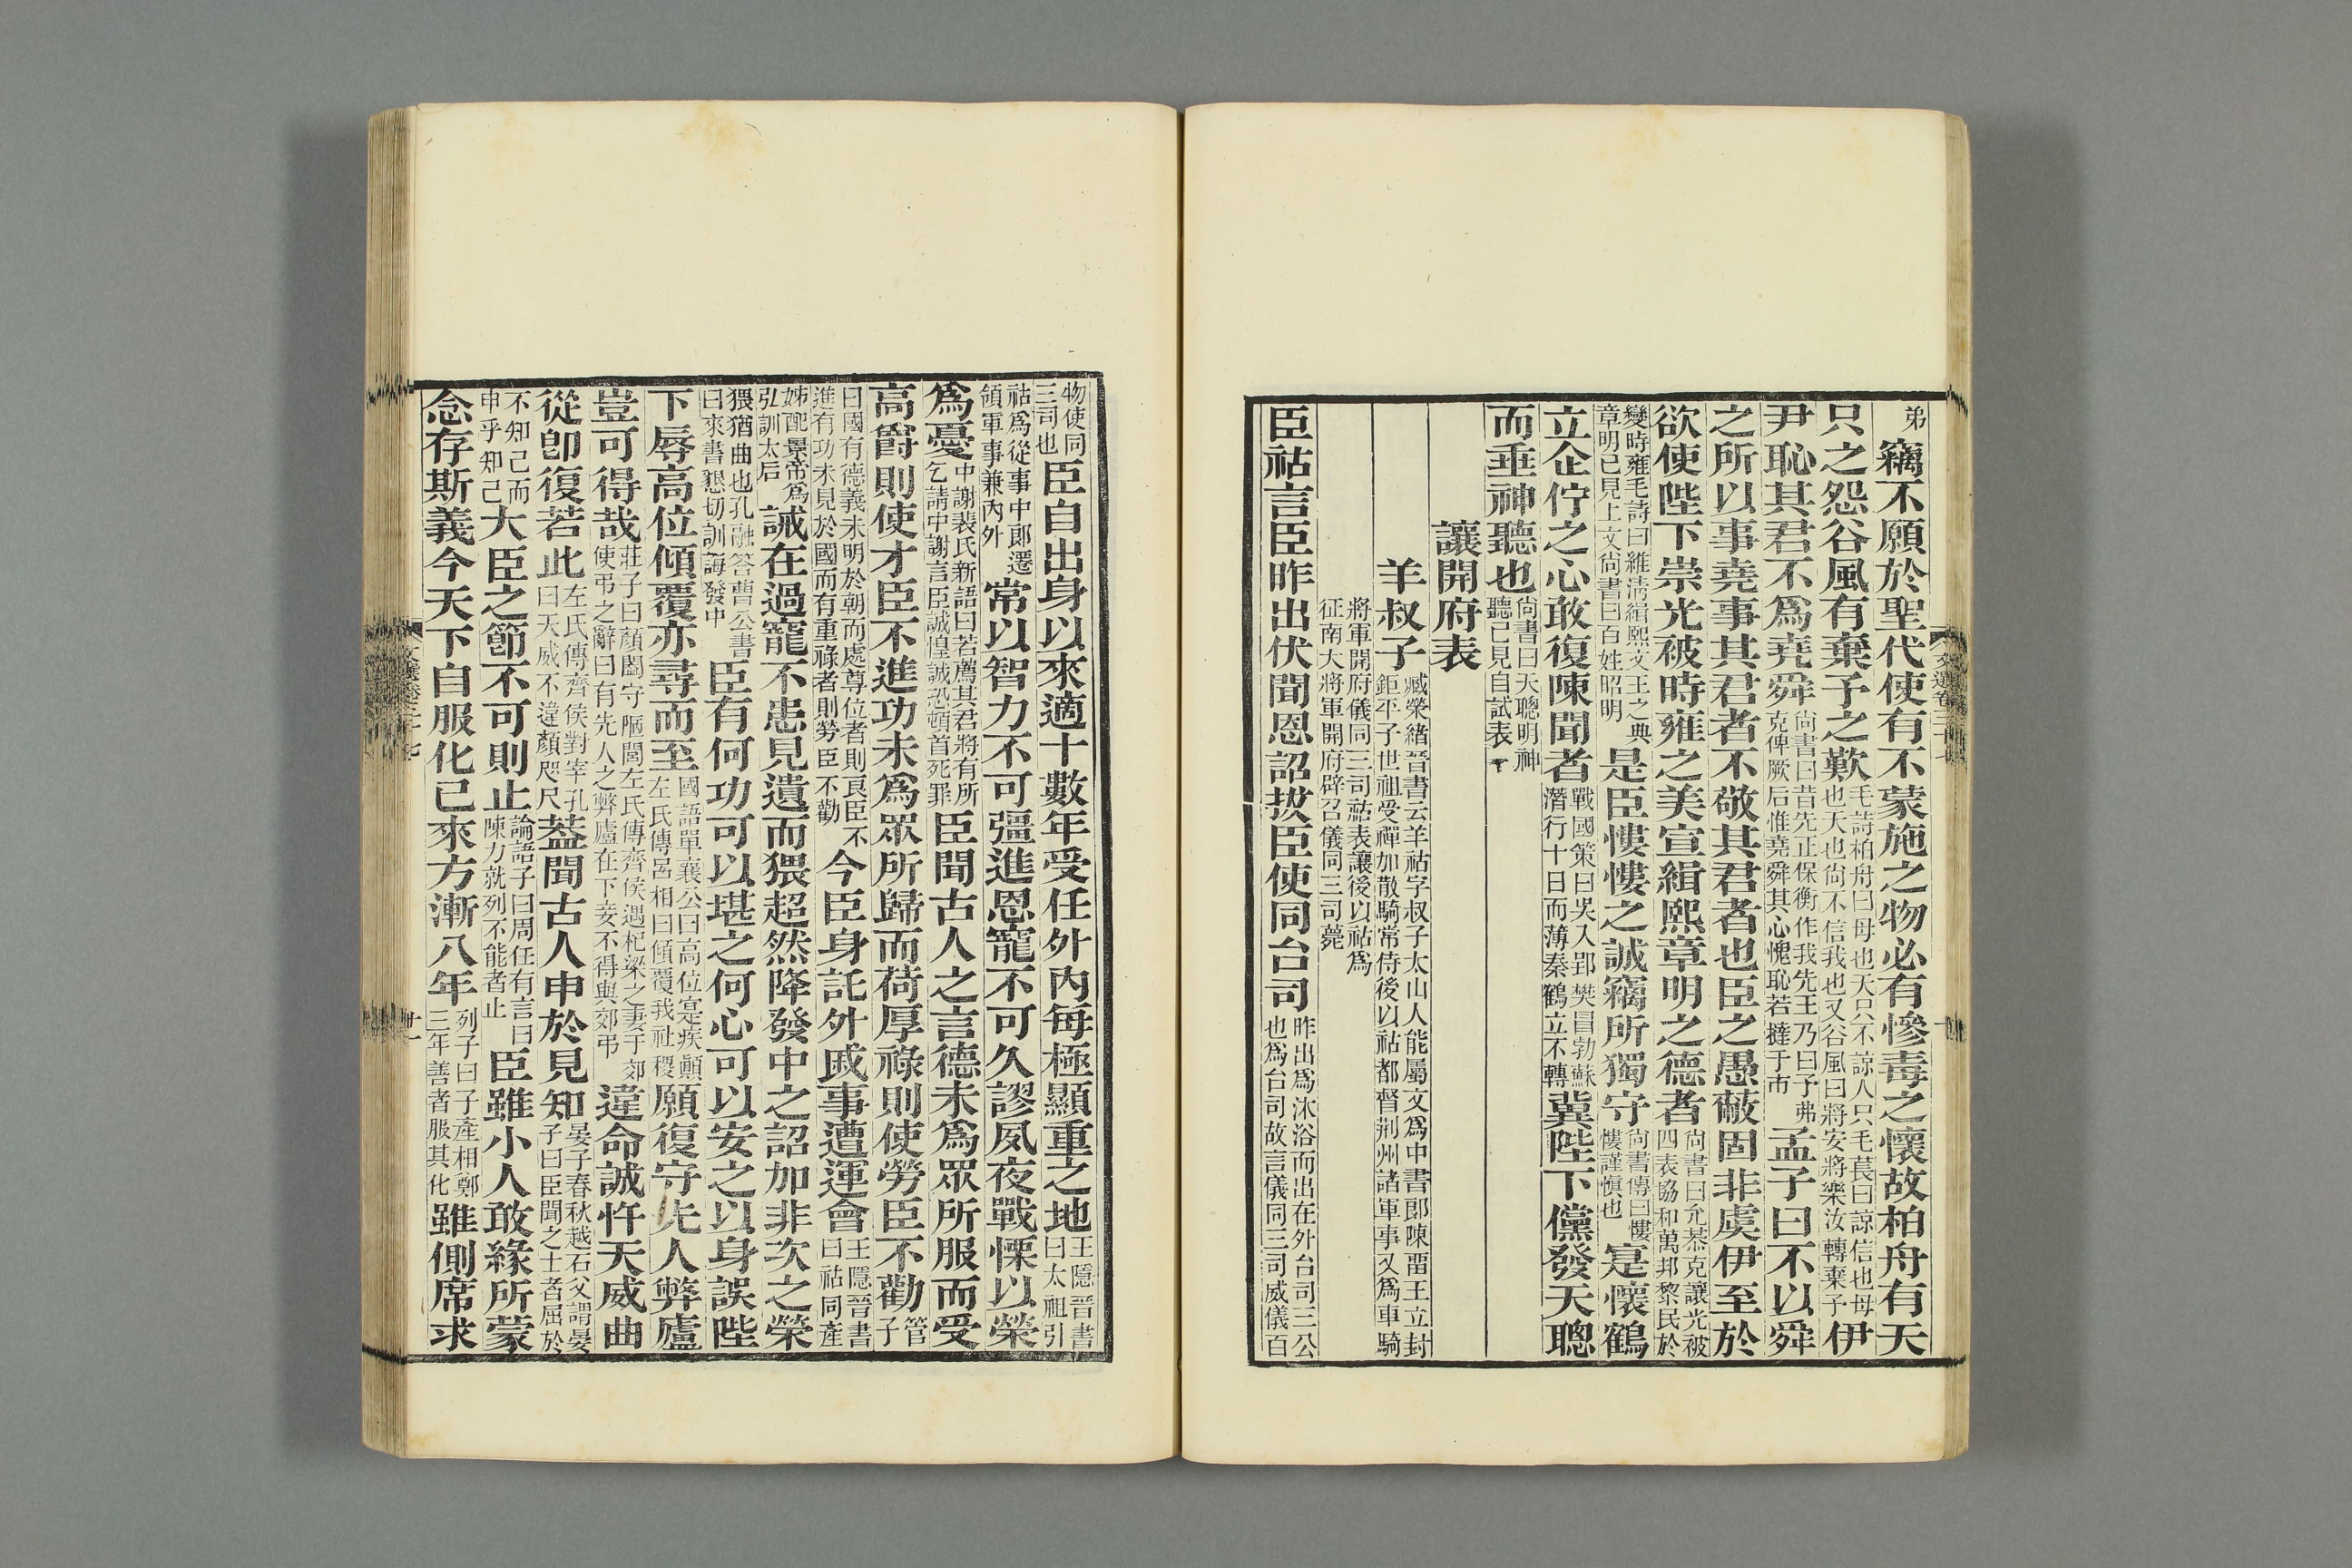 弟竊不願於聖代使有不蒙施之物必有慘毒之懷故柏舟有天
只之怨谷風有棄子之歎毛詩柏舟曰母也天只不諒人只毛萇曰諒信也母
也天也尚不信我也又谷風曰將安將樂汝轉棄予伊
尹恥其君不爲堯舜尚書曰昔先正保衡作我先王乃曰予弗
克俾厥后惟堯舜其心愧恥若撻于市孟子曰不以舜
之所以事堯事其君者不敬其君者也臣之愚蔽固非虞伊至於
欲使陛下崇光被時雍之美宣緝熙章明之德者尚書曰允恭克讓光被
四表協和萬邦黎民於
變時雍毛詩曰維淸緝熙文王之典
章明已見上文尚書曰百姓昭明是臣慺慺之誠竊所獨守尚書傳曰慺
慺謹愼也寔懷鶴
立企佇之心敢復陳聞者戰國策曰吳入郢樊冒勃蘇
潛行十日而薄秦鶴立不轉冀陛下儻發天聰
而垂神聽也尚書曰天聰明神
聽已見自試表
讓開府表
羊叔子臧榮緒晉書云羊祜字叔子太山人能屬文爲中書郎陳畱王立封
鉅平子世祖受禪加散騎常侍後以祜都督荆州諸軍事又爲車騎
將軍開府儀同三司祜表讓後以祜爲
征南大將軍開府辟召儀同三司薨
臣祜言臣昨出伏聞恩詔拔臣使同台司昨出爲沐浴而出在外台司三公
也爲台司故言儀同三司威儀百
物使同
三司也臣自出身以來適十數年受任外內每極顯重之地王隱晉書
曰太祖引
祜爲從事中郎遷
領軍事兼內外常以智力不可彊進恩寵不可久謬夙夜戰慄以榮
爲憂中謝裴氏新語曰若薦其君將有所
乞請中謝言臣誠惶誠恐頓首死罪臣聞古人之言德未爲眾所服而受
高爵則使才臣不進功未爲眾所歸而荷厚祿則使勞臣不勸管
子
曰國有德義未明於朝而處尊位者則良臣不
進有功未見於國而有重祿者則勞臣不勸今臣身託外戚事遭運會王隱晉書
曰祜同產
姊配景帝爲
弘訓太后誡在過寵不患見遺而猥超然降發中之詔加非次之榮
猥猶曲也孔融荅曹公書
曰來書懇切訓誨發中臣有何功可以堪之何心可以安之以身誤陛
下辱高位傾覆亦尋而至國語單襄公曰高位寔疾顚
左氏傳呂相曰傾覆我社稷願復守先人弊廬
豈可得哉莊子曰顏闔守陋閭左氏傳齊侯遇杞梁之妻于郊
使弔之辭曰有先人之弊廬在下妾不得與郊弔違命誠忤天威曲
從卽復若此左氏傳齊侯對宰孔
曰天威不違顏咫尺葢聞古人申於見知晏子春秋越石父謂晏
子曰臣聞之士者屈於
不知己而
申乎知己大臣之節不可則止論語子曰周任有言曰
陳力就列不能者止臣雖小人敢緣所蒙
念存斯義今天下自服化已來方漸八年列子曰子產相鄭
三年善者服其化雖側席求